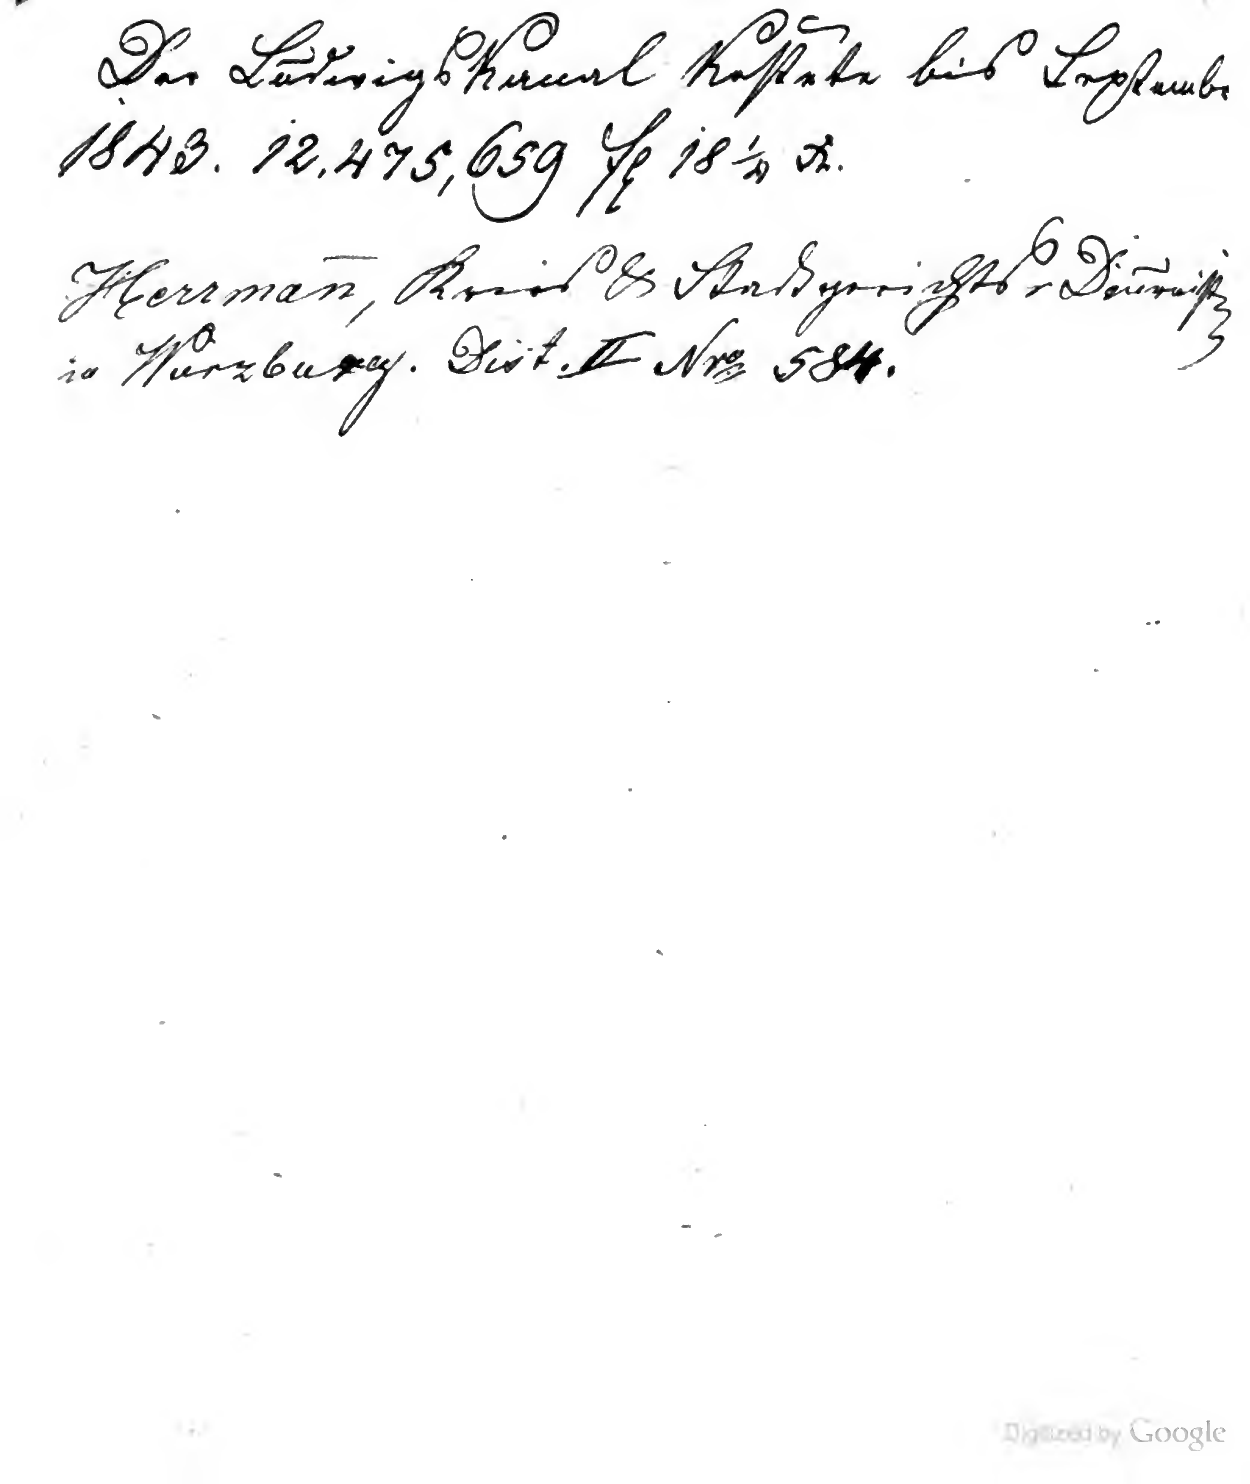 Der Ludwigskanal kostete bis Septembe
1843. 12.475,659 fl 18 1/2 x.
Herrman̅, Kreis & Stadtgerichts-Diurnist
in Würzburg. Dist. II Nro 584.
Digitized by Google